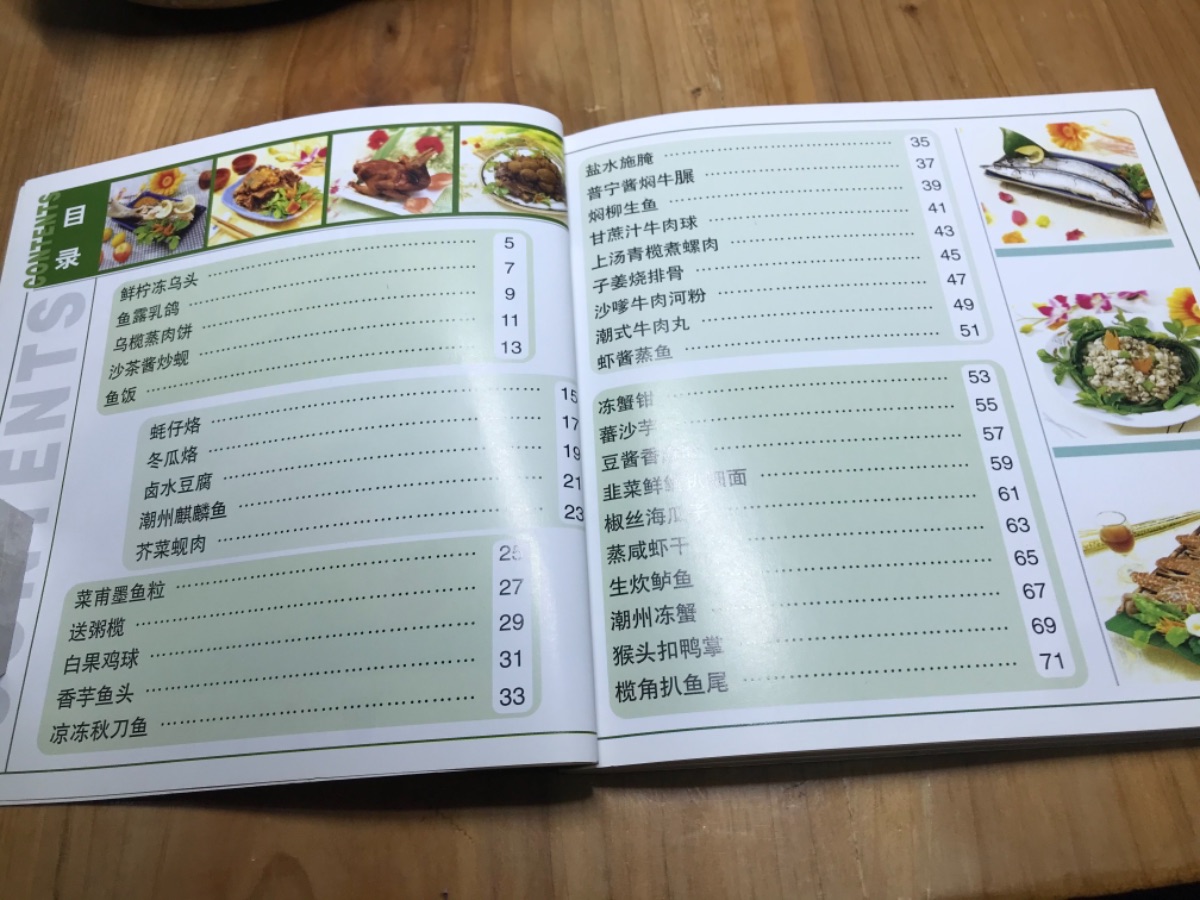 CONTENTS
目录
鲜柠冻乌头 5
鱼露乳鸽 7
乌榄蒸肉饼 9
沙茶酱炒蚬 11
鱼饭 13
蚝仔烙 15
冬瓜烙 17
卤水豆腐 19
潮州麒麟鱼 21
芥菜蚬肉 23
菜甫墨鱼粒 25
送粥榄 27
白果鸡球 29
香芋鱼头 31
凉冻秋刀鱼 33
盐水施腌 35
普宁酱焖牛腘 37
焖柳生鱼 39
甘蔗汁牛肉球 41
上汤青榄煮螺肉 43
子姜烧排骨 45
沙嗲牛肉河粉 47
潮式牛肉丸 49
虾酱蒸鱼 51
冻蟹钳 53
蕃沙芋 55
豆酱香 57
韭菜鲜 面 59
椒丝海瓜子 61
蒸咸虾干 63
生炊鲈鱼 65
潮州冻蟹 67
猴头扣鸭掌 69
榄角扒鱼尾 71